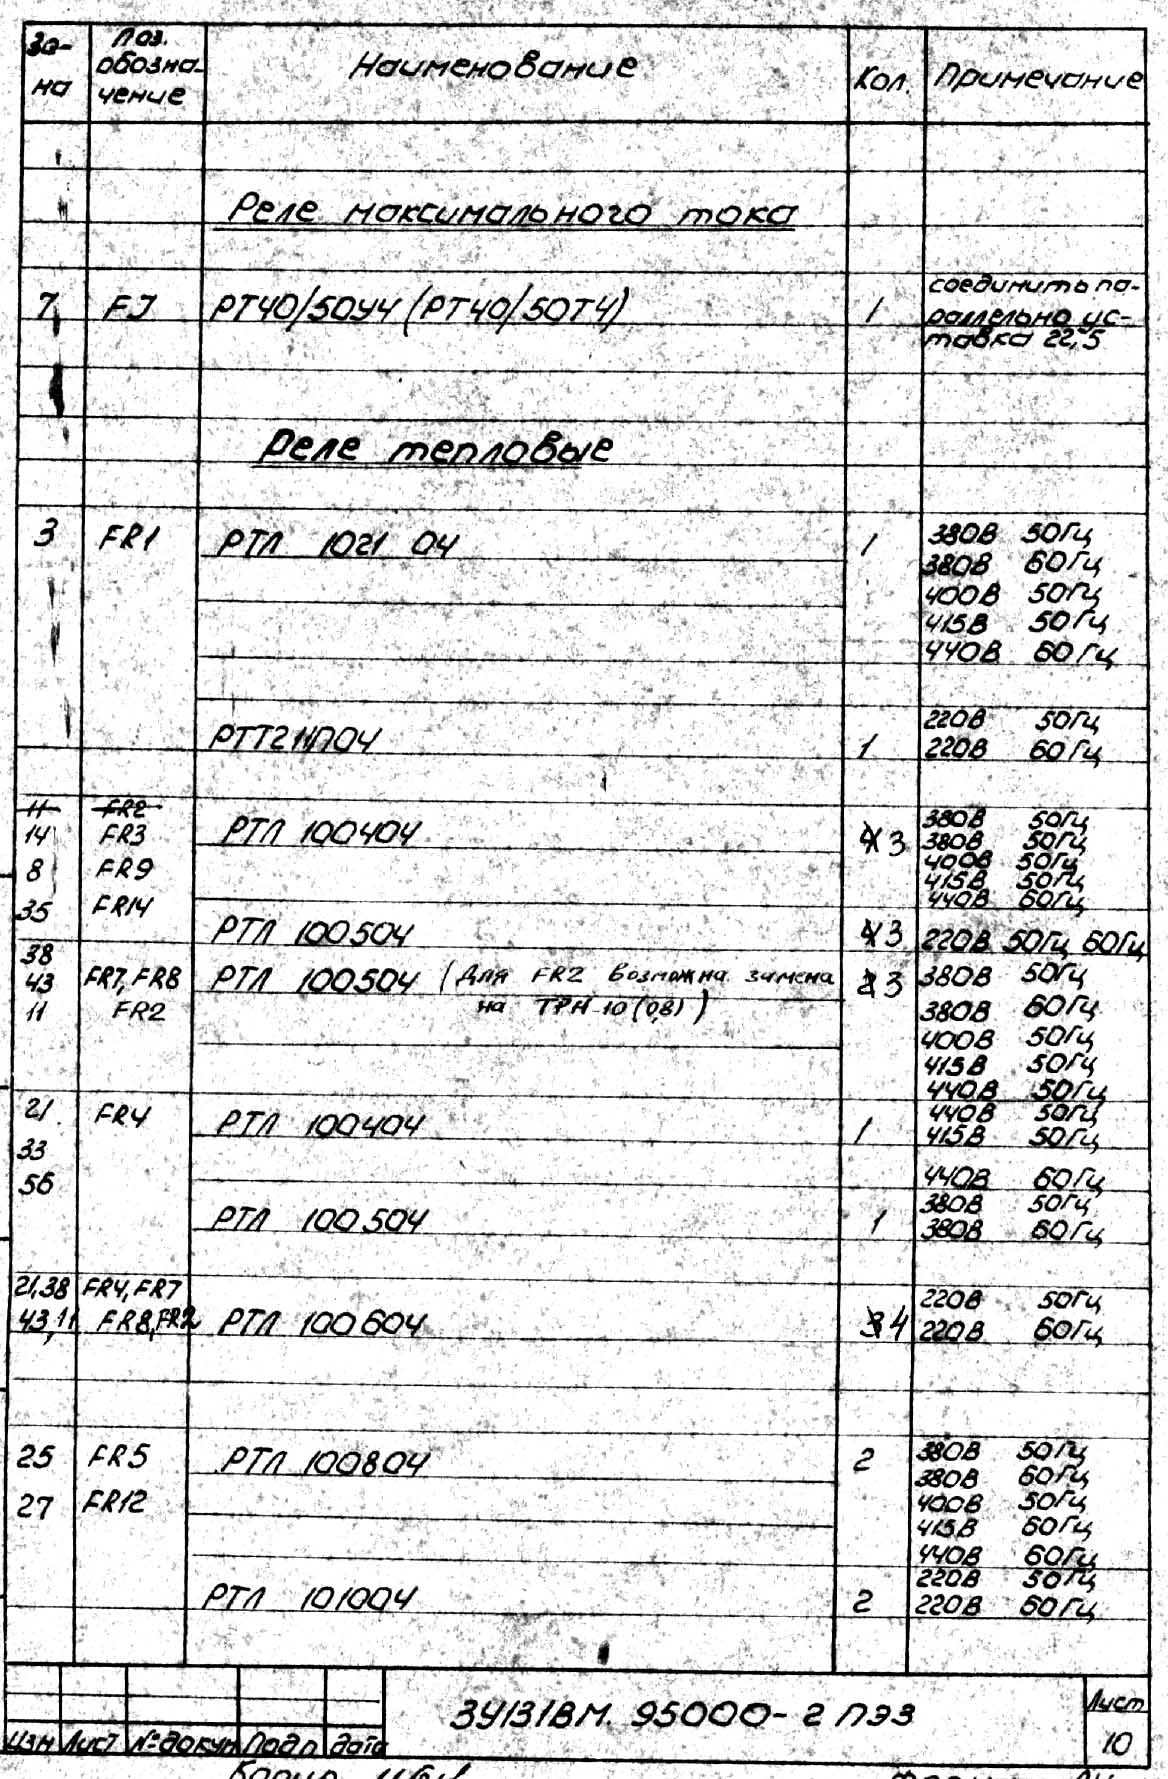 Зо-на
Поз. обозна-чение
Наименование
Кол.
Примечание
Реле максимального тока
соединить па-
7 FJ РТ40/50У4 (РТ40/50Т4) 1 раллельно ус-
тавка 22,5
Реле тепловые
3 FR1 РТЛ 1021 04 1 380В 50Гц
380В 60Гц
400В 50Гц
415В 50Гц
440В 60Гц
220В 50Гц
1 220В 60Гц
11 FR2 380В 50Гц
14 FR3 РТЛ 100404 3 380В 50Гц
400В 50Гц
8 FR9 415В 50Гц
35 FR14 440В 60Гц
РТЛ 100504 3 220В 50Гц 60Гц
38
43 FR7, FR8 РТЛ 100504 (Для FR2 возможна замена 3 380В 50Гц
11 FR2 на ТРН-10 (0,8)) 380В 60Гц
400В 50Гц
415В 50Гц
440В 50Гц
21 FR4 РТЛ 100404 1 440В 50Гц
415В 50Гц
33
56 440В 60Гц
380В 50Гц
РТЛ 100504 1 380В 60Гц
21,38 FR4, FR7 220В 50Гц
43,11 FR8, FR2 РТЛ 100604 4 220В 60Гц
25 FR5 РТЛ 100804 2 380В 50Гц
380В 60Гц
27 FR12 400В 50Гц
415В 60Гц
440В 60Гц
220В 50Гц
РТЛ 101004 2 220В 60Гц
3У131ВМ. 95000-2 ПЭ3
Лист
10
Изм Лист № докум Подп Дата